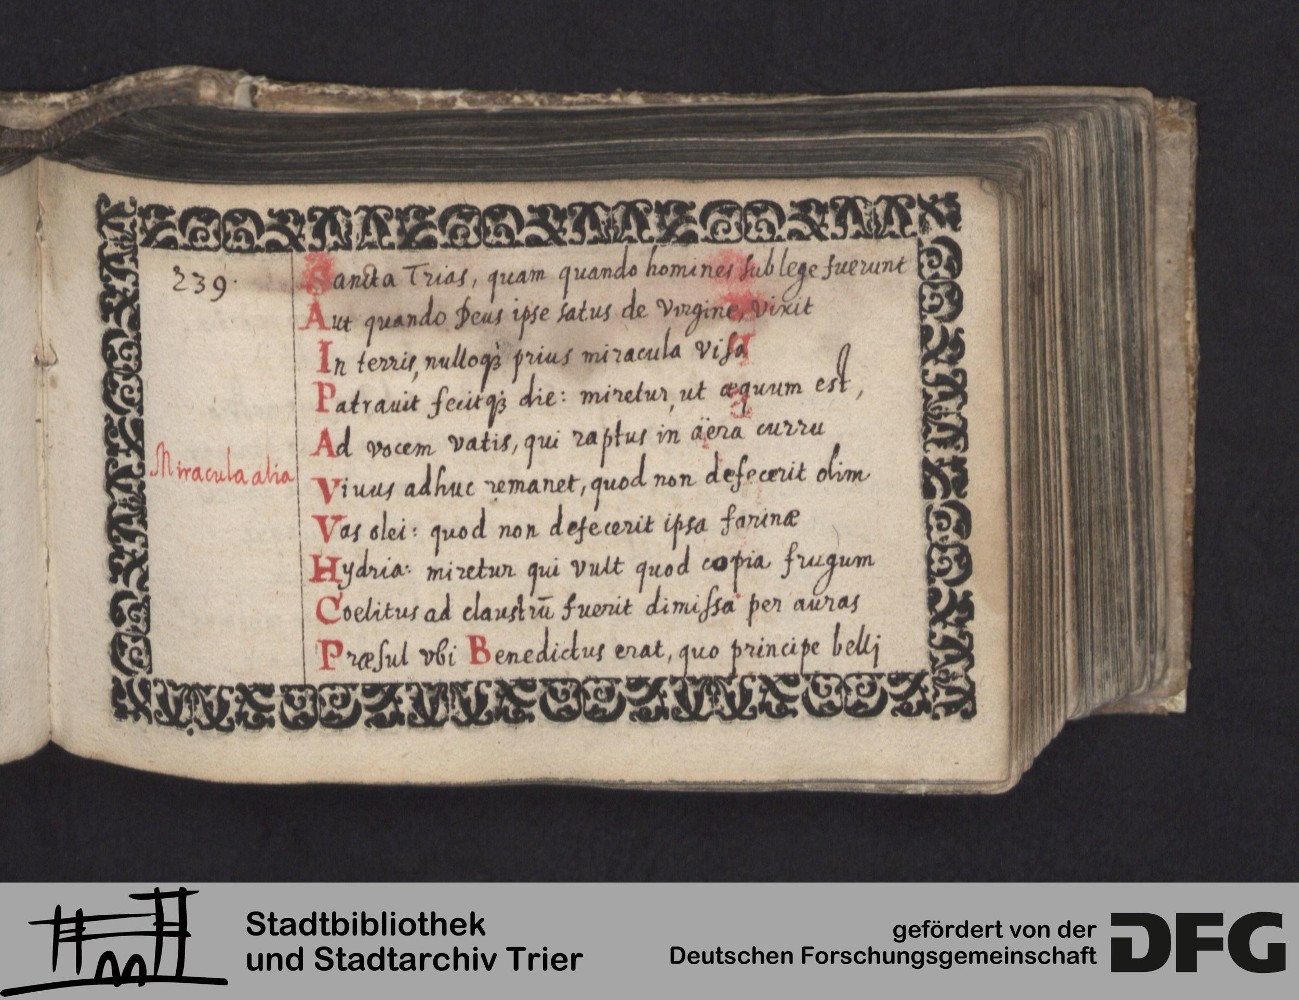 239.
Sancta Trias, quam quando homines sub lege fuerunt
Aut quando Deus ipse satus de virgine, vixit
In terris, nulloqꝫ prius miracula visa
Patrauit fecitqꝫ die: miretur, ut æquum est,
Ad vocem vatis, qui raptus in aëra curru
Miracula alia
Viuus adhuc remanet, quod non defecerit olim
Vas olei: quod non defecerit ipsa farinæ
Hydria: miretur qui vult quod copia frugum
Coelitus ad claustrū fuerit dimissa per auras
Præsul vbi Benedictus erat, quo principe bellj
Stadtbibliothek
und Stadtarchiv Trier
gefördert von der
Deutschen Forschungsgemeinschaft
DFG